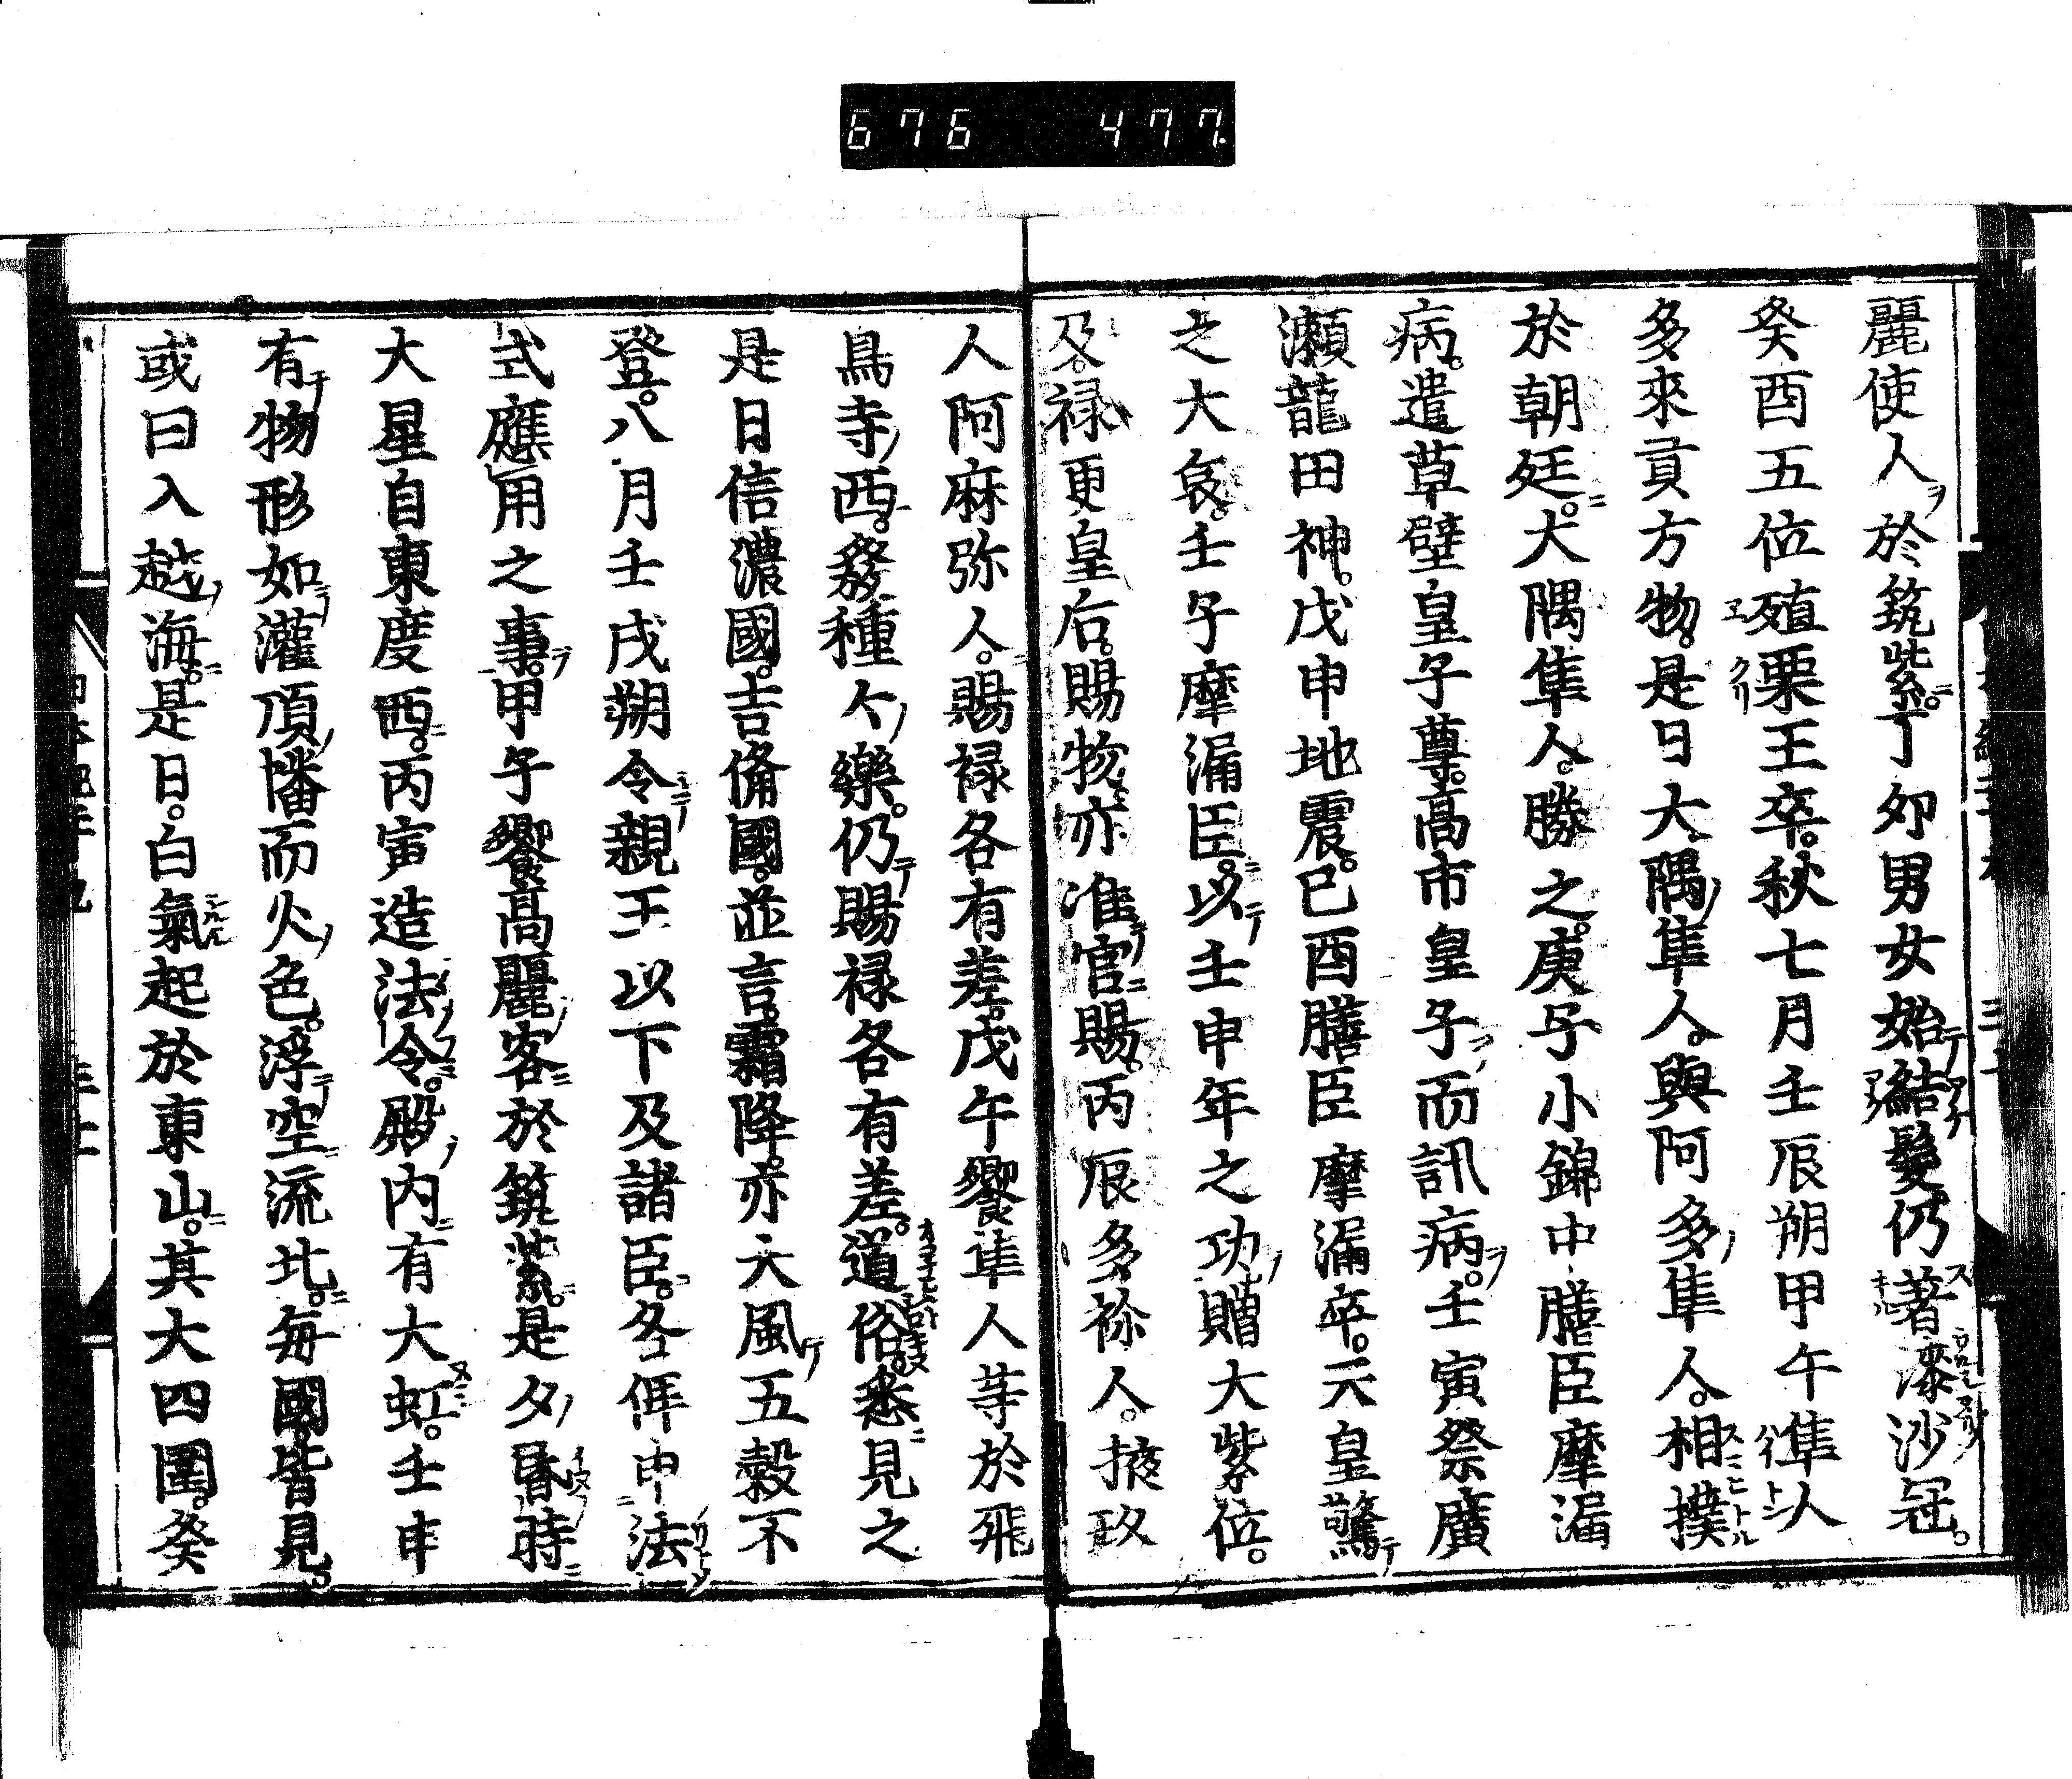 676 477
麗使人於筑紫丁卯男女始結髮仍著漆沙冠
癸酉五位殖栗王卒秋七月壬辰朔甲午隼人
多來貢方物是日大隅隼人與阿多隼人相撲
於朝廷大隅隼人勝之庚子小錦中膳臣摩漏
病遣草壁皇子尊高市皇子而訊病壬寅祭廣
瀬龍田神戊申地震己酉膳臣摩漏卒天皇驚
之大哀壬子摩漏臣以壬申年之功贈大紫位
及禄更皇后賜物亦准官賜丙辰多祢人掖玖
人阿麻弥人賜禄各有差戊午饗隼人等於飛
鳥寺西發種々樂仍賜禄各有差道俗悉見之
是日信濃國吉備國並言霜降亦大風五穀不
登八月壬戌朔令親王以下及諸臣各俾申法
式應用之事甲子饗高麗客於筑紫是夕昏時
大星自東度西丙寅造法令殿内有大虹壬申
有物形如灌頂幡而火色浮空流北毎國皆見
或曰入越海是日白氣起於東山其大四圍癸